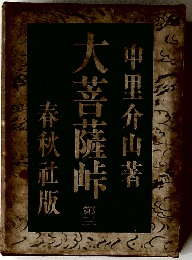 中里介山著
大菩薩峠
第三
春秋社版